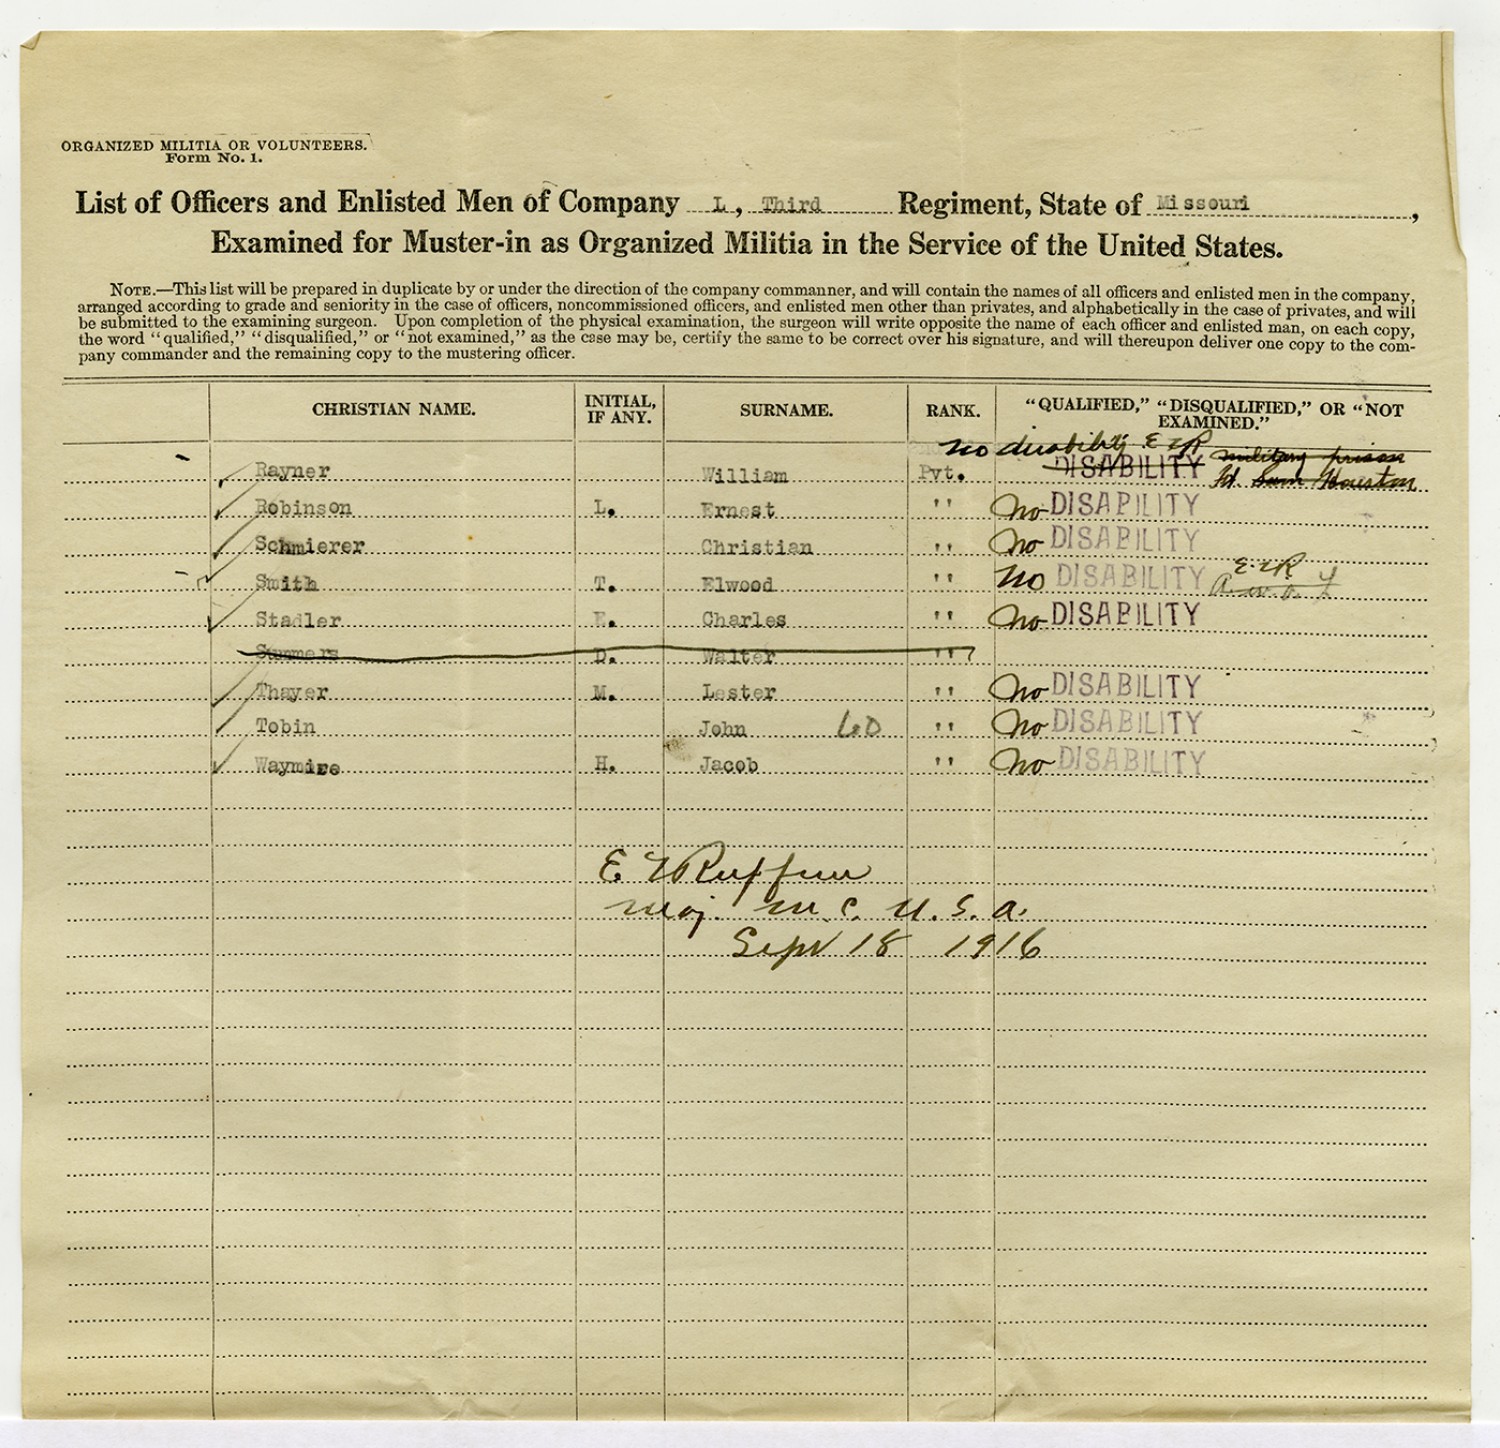 ORGANIZED MILITIA OR VOLUNTEERS.
Form No. 1.
List of Officers and Enlisted Men of Company L, Third Regiment, State of Missouri,
Examined for Muster-in as Organized Militia in the Service of the United States.
NOTE.—This list will be prepared in duplicate by or under the direction of the company commanner, and will contain the names of all officers and enlisted men in the company,
arranged according to grade and seniority in the case of officers, noncommissioned officers, and enlisted men other than privates, and alphabetically in the case of privates, and will
be submitted to the examining surgeon. Upon completion of the physical examination, the surgeon will write opposite the name of each officer and enlisted man, on each copy,
the word "qualified," "disqualified," or "not examined," as the case may be, certify the same to be correct over his signature, and will thereupon deliver one copy to the com-
pany commander and the remaining copy to the mustering officer.
CHRISTIAN NAME. INITIAL, IF ANY. SURNAME. RANK. "QUALIFIED," "DISQUALIFIED," OR "NOT EXAMINED."
no disability E W R
Rayner William Pvt. DISABILITY military prison
Ft. Sam Houston
Robinson L. Ernest '' No DISABILITY
Schmierer Christian '' No DISABILITY
Smith T. Elwood '' No DISABILITY E W R
A.w.o.L
Stadler E. Charles '' No DISABILITY
Summers D. Walter ''
Thayer M. Lester '' No DISABILITY
Tobin John LD '' No DISABILITY
Waymire H. Jacob '' No DISABILITY
E W Ruffin
Maj. M.C. U.S.A.
Sept 18 1916